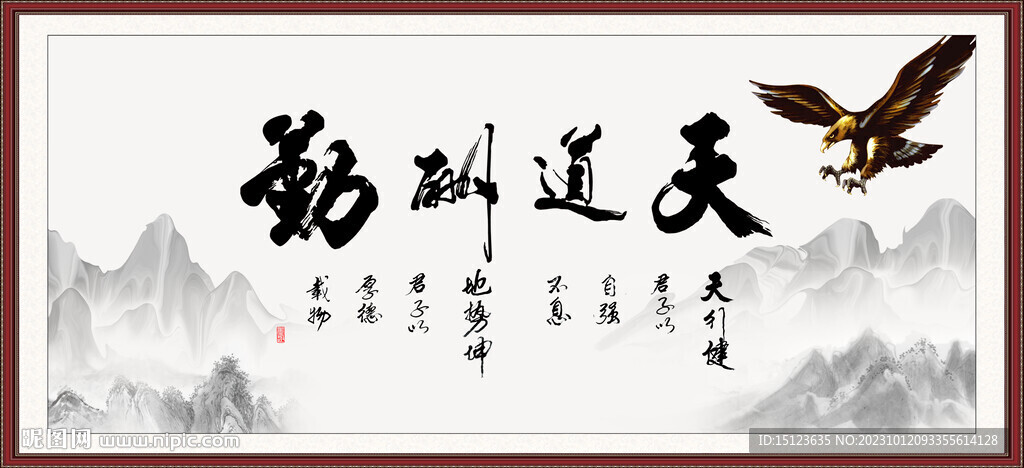 天道酬勤
天行健
君子以
自强
不息
地势坤
君子以
厚德
载物
昵图网 www.nipic.com
ID:15123635 NO:20231012093355614128